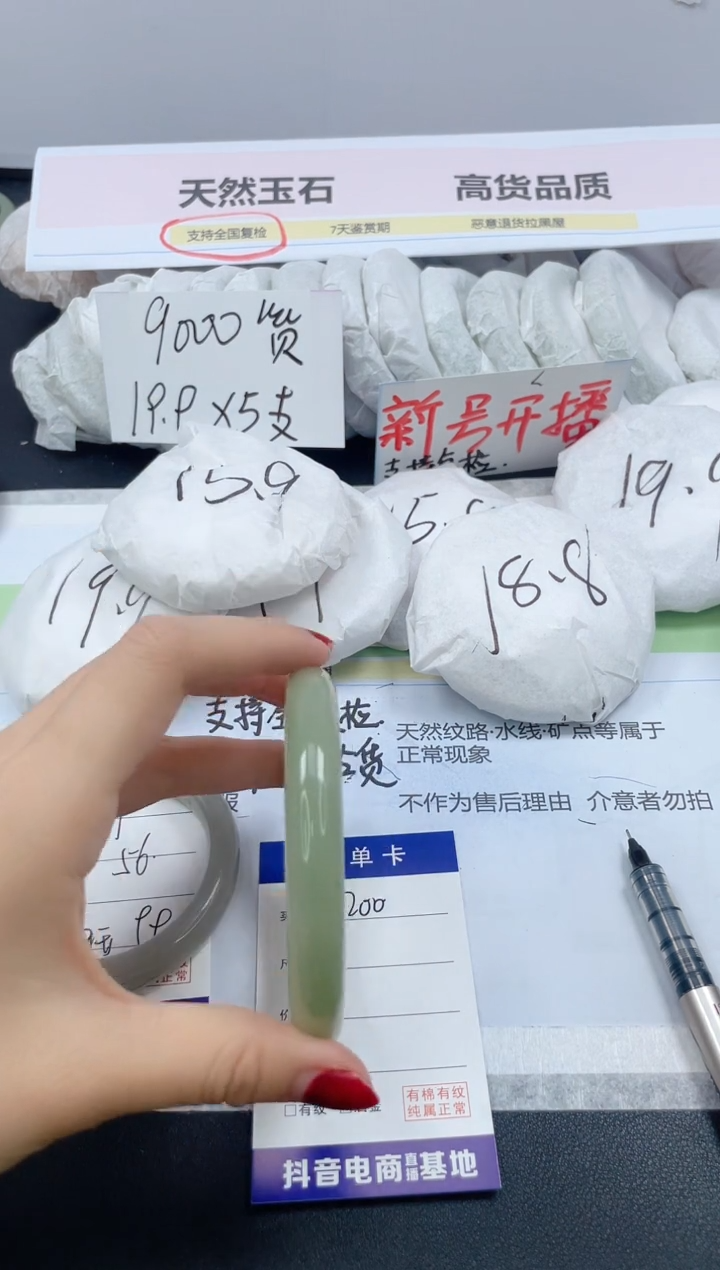 天然玉石 高货品质
支持全国复检 7天鉴赏期 恶意退货拉黑屋
9000货
19.9×5支
新号开播
支持复检.
15.9
19.9
15.9
18.8
19.9
支持全 检.
货
天然纹路·水线·矿点等属于
正常现象
不作为售后理由 介意者勿拍
56.
99
正常
单卡
200
有纹
有棉有纹
纯属正常
抖音电商直播基地